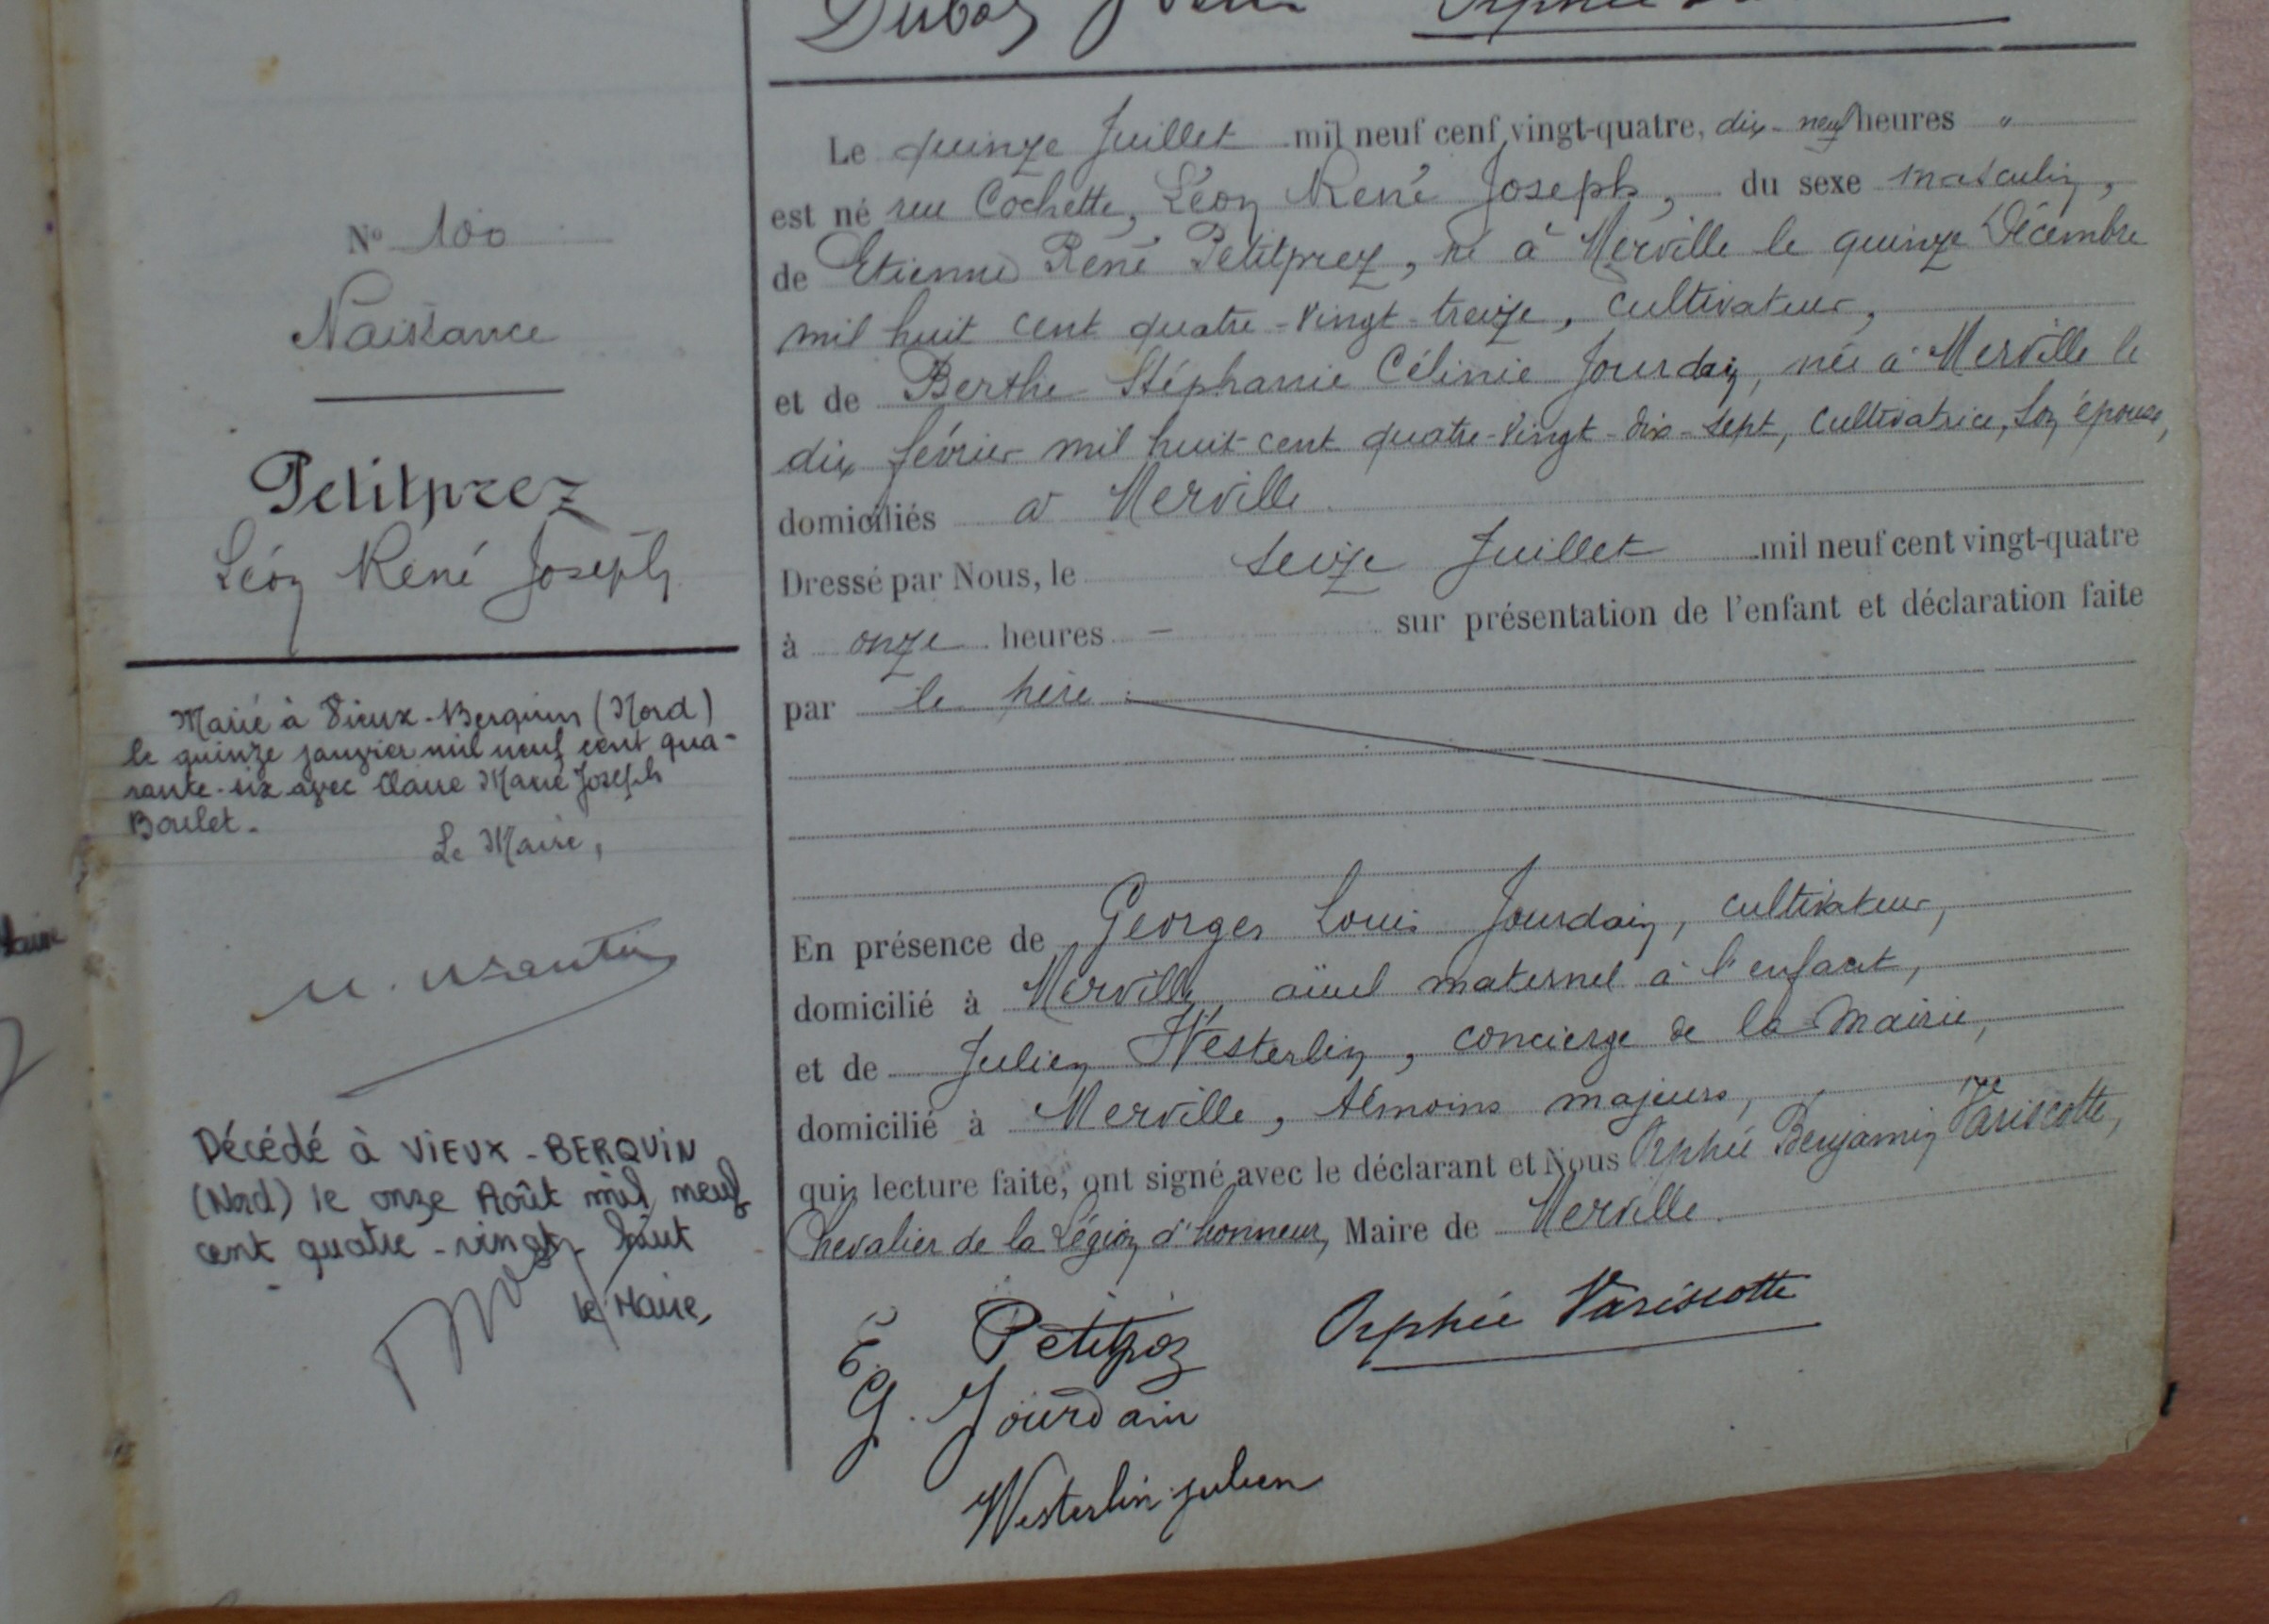 N° 100
Naissance
Petitprez
Léon René Joseph
Marié à Vieux-Berquin (Nord)
le quinze janvier mil neuf cent qua-
rante-six avec Claire Marie Joseph
Boulet.
Le Maire,
Décédé à VIEUX-BERQUIN
(Nord) le onze Août mil neuf
cent quatre-vingt huit
le Maire,
Le quinze Juillet mil neuf cent vingt-quatre, dix-neuf heures "
est né rue Cochette, Léon René Joseph, du sexe masculin,
de Etienne René Petitprez, né à Merville le quinze Décembre
mil huit cent quatre-vingt-treize, cultivateur,
et de Berthe Stéphanie Célinie Jourdain, née à Merville le
dix février mil huit cent quatre-vingt-dix-sept, cultivatrice, son épouse,
domiciliés à Merville.
Dressé par Nous, le seize Juillet mil neuf cent vingt-quatre
à onze heures — sur présentation de l'enfant et déclaration faite
par le père.
En présence de Georges Louis Jourdain, cultivateur,
domicilié à Merville, aïeul maternel à l'enfant,
et de Julien Westerlin, concierge de la Mairie,
domicilié à Merville, témoins majeurs,
qui, lecture faite, ont signé avec le déclarant et Nous Orphée Benjamin Variscotte,
Chevalier de la Légion d'honneur, Maire de Merville.
E. Petitprez
Orphée Variscotte
G. Jourdain
Westerlin julien